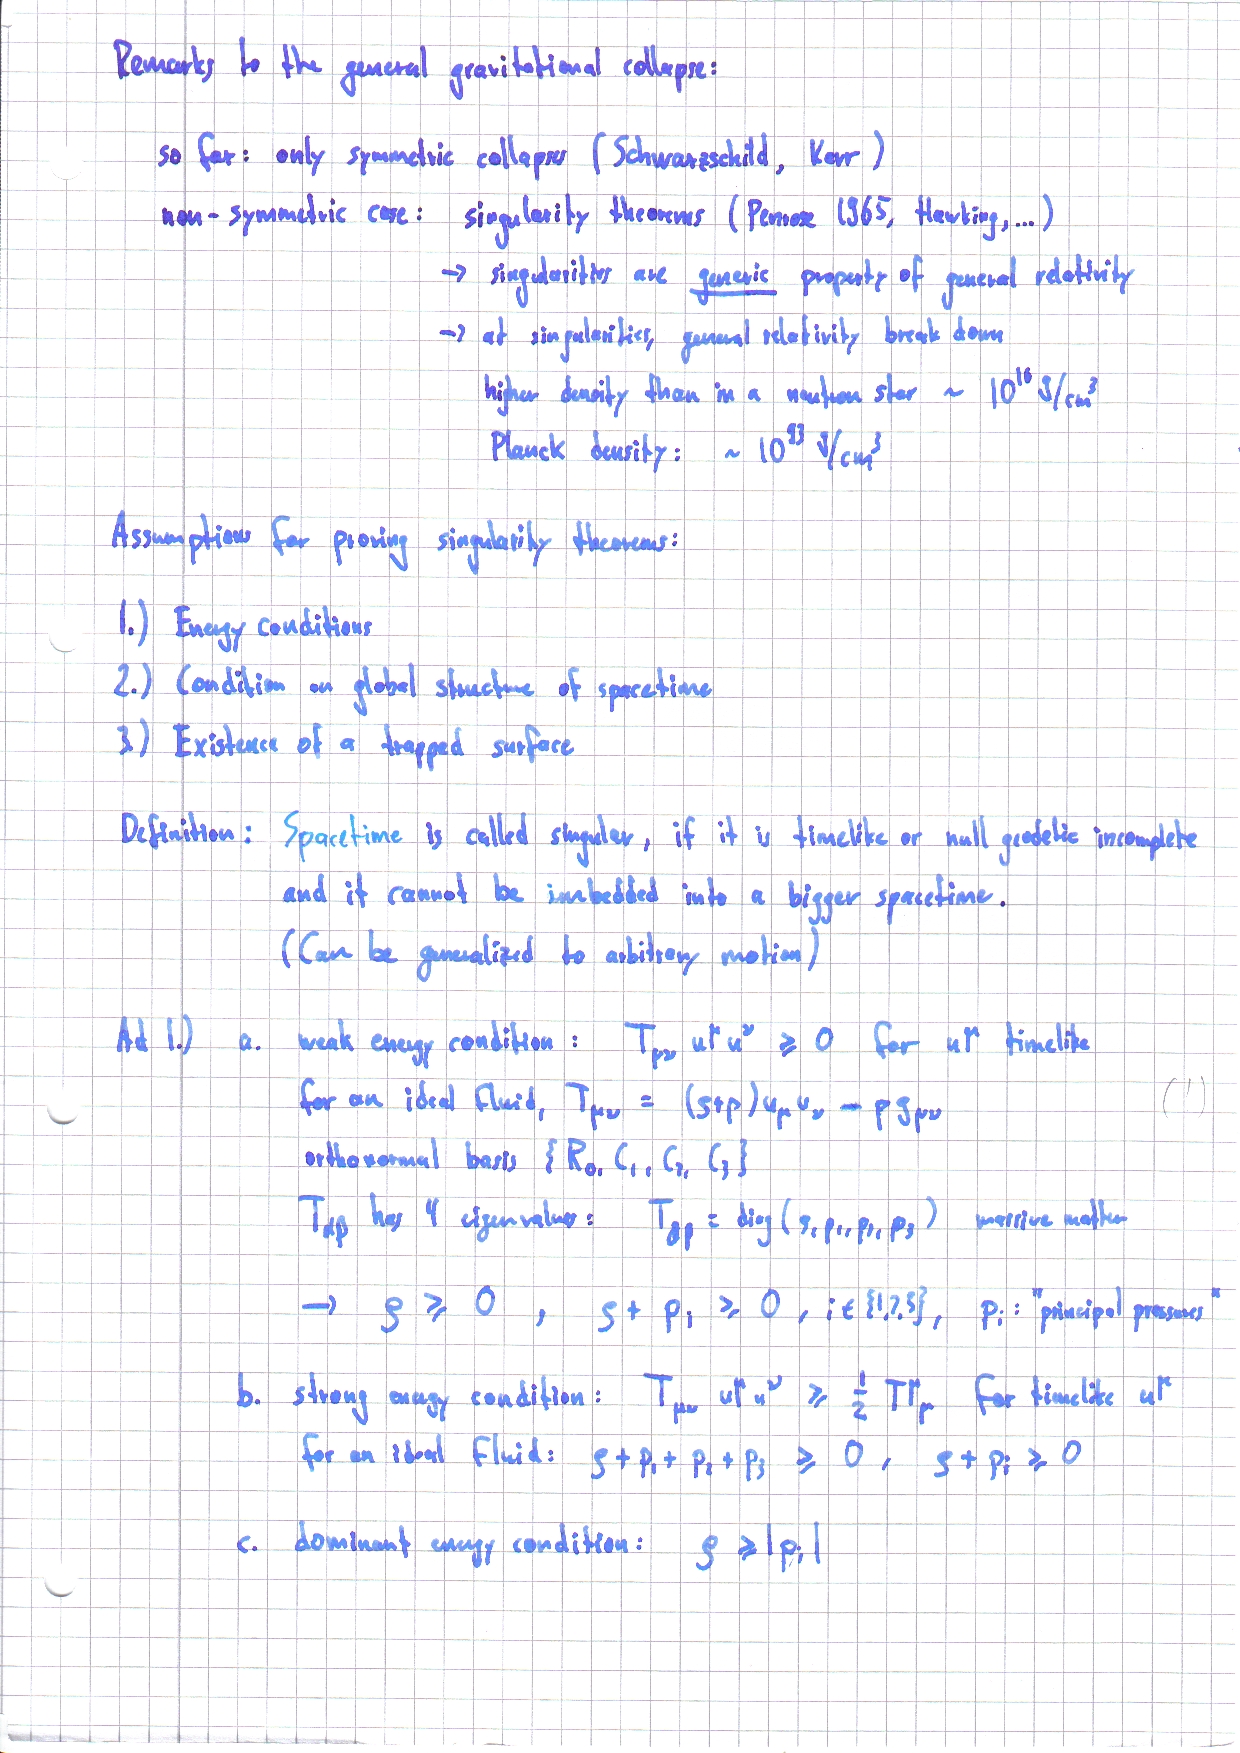 Remarks to the general gravitational collapse:
so far: only symmetric collapses (Schwarzschild, Kerr)
non-symmetric case: singularity theorems (Penrose 1965, Hawking, ...)
→ singularities are generic property of general relativity
→ at singularities, general relativity break down
higher density than in a neutron star ~ 10¹⁶ g/cm³
Planck density: ~ 10⁹³ g/cm³
Assumptions for proving singularity theorems:
1.) Energy conditions
2.) Condition on global structure of spacetime
3.) Existence of a trapped surface
Definition: Spacetime is called singular, if it is timelike or null geodetic incomplete
and it cannot be imbedded into a bigger spacetime.
(Can be generalized to arbitrary motion)
Ad 1.) a. weak energy condition: T_μν u^μ u^ν ≥ 0 for u^μ timelike
for an ideal fluid, T_μν = (ρ+p) u_μ u_ν − p g_μν
orthonormal basis {e₀, e₁, e₂, e₃}
T_αβ has 4 eigenvalues: T_αβ = diag(ρ, p₁, p₂, p₃) massive matter
→ ρ ≥ 0, ρ + p_i ≥ 0, i ∈ {1,2,3}, p_i: "principal pressures"
b. strong energy condition: T_μν u^μ u^ν ≥ ½ T^μ_μ for timelike u^μ
for an ideal fluid: ρ + p₁ + p₂ + p₃ ≥ 0, ρ + p_i ≥ 0
c. dominant energy condition: ρ ≥ |p_i|